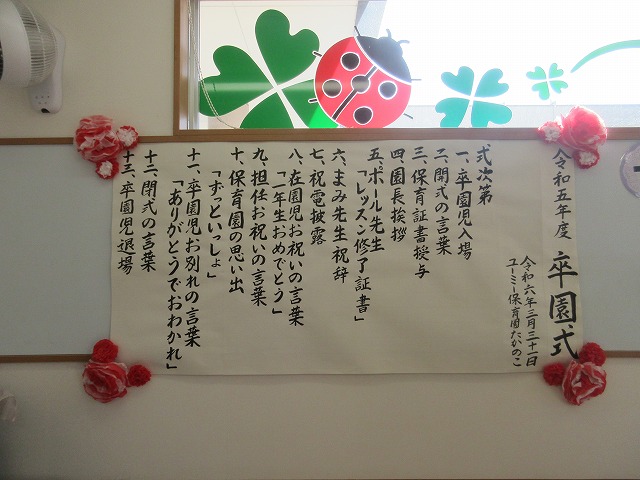 令和五年度 卒園式
令和六年三月三十一日
ユーミー保育園たかのこ
式次第
一、卒園児入場
二、開式の言葉
三、保育証書授与
四、園長挨拶
五、ポール先生
「レッスン修了証書」
六、まみ先生祝辞
七、祝電披露
八、在園児お祝いの言葉
「一年生おめでとう」
九、担任お祝いの言葉
十、保育園の思い出
「ずっといっしょ」
十一、卒園児お別れの言葉
「ありがとうでおわかれ」
十二、閉式の言葉
十三、卒園児退場